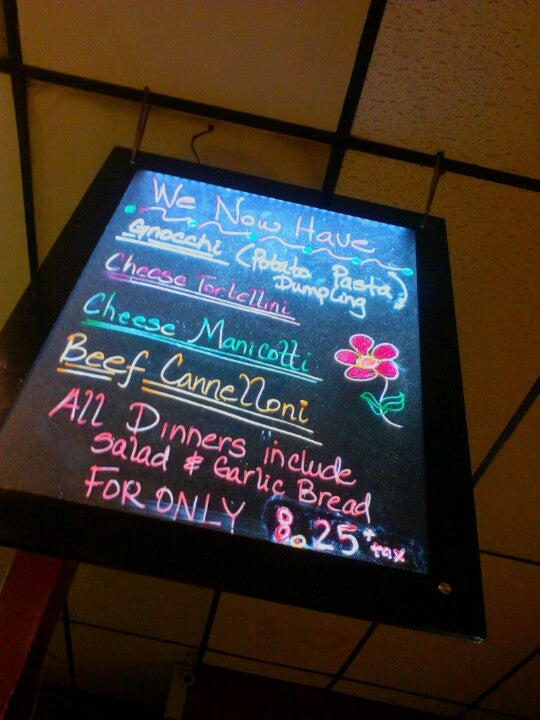 We Now Have
Gnocchi (Potato Pasta)
Dumpling
Cheese Tortellini
Cheese Manicotti
Beef Cannelloni
All Dinners include
Salad & Garlic Bread
FOR ONLY 8.25 + tax